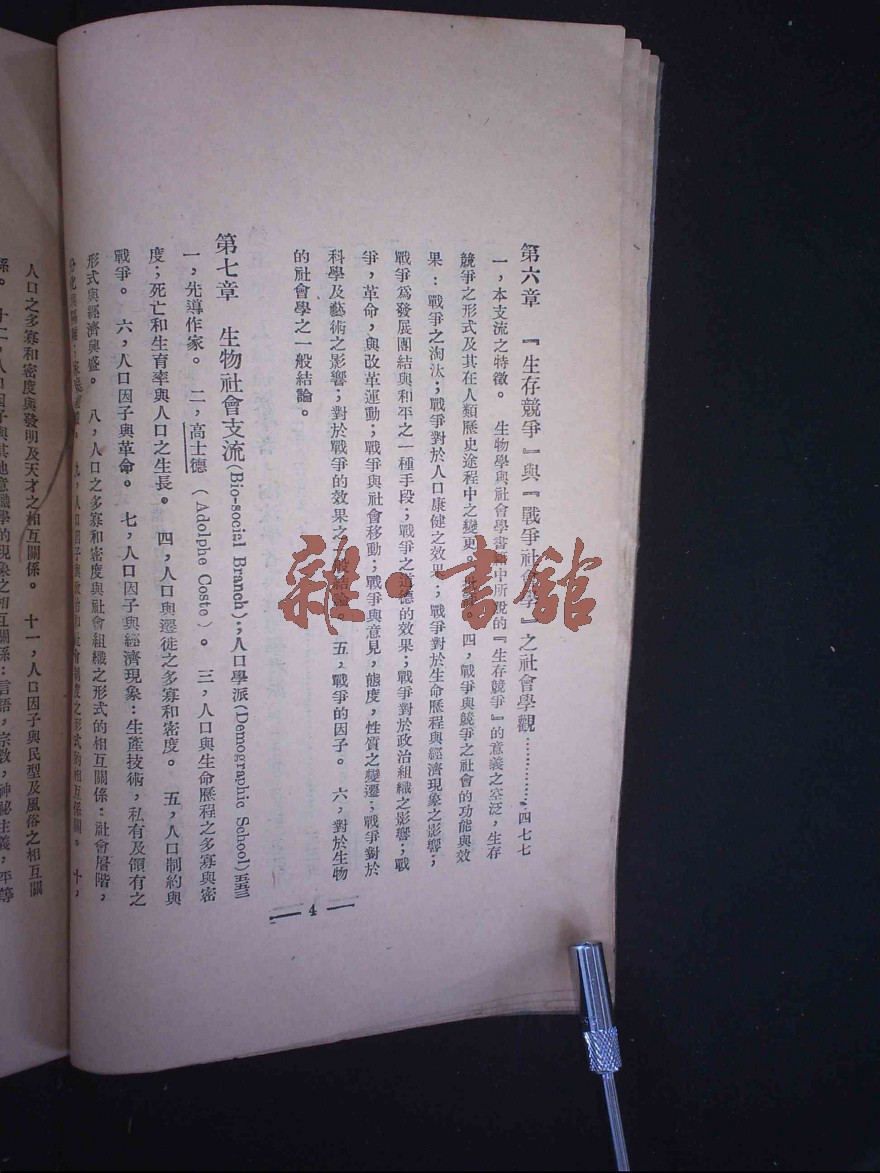 第六章　『生存競爭』與『戰爭社會學』之社會學觀…………四七七
一，本支流之特徵。　生物學與社會學書籍中所說的『生存競爭』的意義之空泛，生存
競爭之形式及其在人類歷史途程中之變更。　四，戰爭與競爭之社會的功能與效
果：戰爭之淘汰；戰爭對於人口康健之效果；戰爭對於生命歷程與經濟現象之影響；
戰爭爲發展團結與和平之一種手段；戰爭之道德的效果；戰爭對於政治組織之影響；戰
爭，革命，與改革運動；戰爭與社會移動；戰爭與意見，態度，性質之變遷；戰爭對於
科學及藝術之影響；對於戰爭的效果之一般結論。　五，戰爭的因子。　六，對於生物
的社會學之一般結論。
第七章　生物社會支流(Bio-social Branch)；人口學派(Demographic School)
一，先導作家。　二，高士德（Adolphe Coste）。　三，人口與生命歷程之多寡與密
度；死亡和生育率與人口之生長。　四，人口與遷徙之多寡和密度。　五，人口制約與
戰爭。　六，人口因子與革命。　七，人口因子與經濟現象：生產技術，私有及領有之
形式與經濟興盛。　八，人口之多寡和密度與社會組織之形式的相互關係：社會層階，
九，人口因子與政治和社會制度之形式的相互係關。　十，
人口之多寡和密度與發明及天才之相互關係。　十一，人口因子與民型及風俗之相互關
係。　十二，人口因子與其他意識學的現象之相互關係：言語，宗教，神祕主義，平等
— 4 —
雜·書館